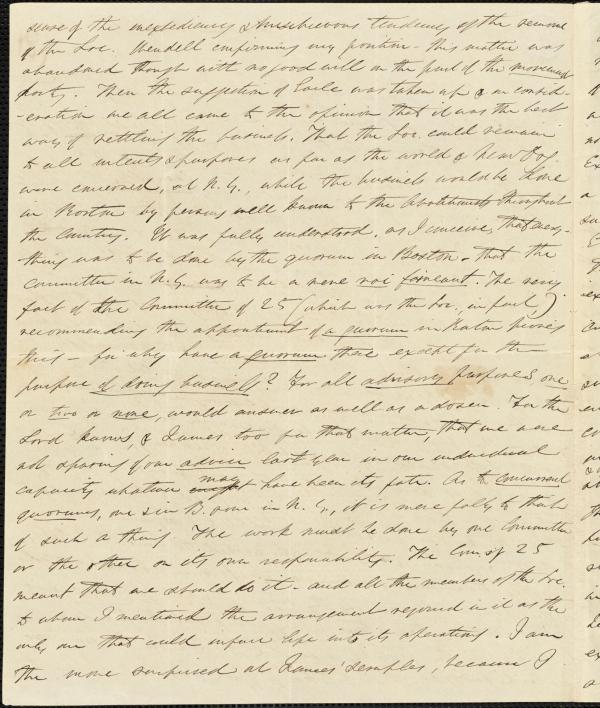 sense of the inexpediency & mischievous tendency of the removal
of the Soc. Wendell confirming my position - this matter was
abandoned though with no good will on the part of the movement
party. Then the suggestion of was taken up & on consid-
-eration we all came to the opinion that it was the best
way of settling the business. That the Soc. could remain
to all intents & purposes as far as the world & New Org.
were concerned, at N. Y., while the business would be done
in Boston by persons well known to the Abolitionists throughout
the Country. It was fully understood, as I conceive, that every-
thing was to be done by the quorum in Boston - that the
Committee in N. Y. was to be a mere The very
fact of the Committee of 25 (which was the Soc., in fact)
recommending the appointment of a quorum in proves
this - for why have a quorum there except for the
purpose of doing business? For all advisory purposes one
or two or none, would answer as well as a dozen. For the
Lord knows, & James too for that matter, that we were
not sparing of our advice last year in our individual
capacity whatever may have been its fate. As to concurrent
quorums, one in B. one in N. Y., it is mere folly to think
of such a thing. The work must be done by one Committee
or the other on its own responsibility. The Com. of 25
meant that we should do it - and all the members of the Soc.
to whom I mentioned the arrangement rejoiced in it as the
only one that could infuse life into its operations. I am
the more surprised at James' scruples, because I